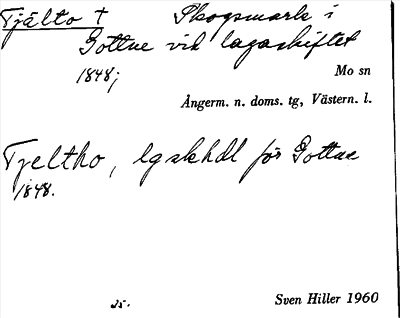 Tjälto † Skogsmark i
Gottne vid lagaskiftet
1848;
Mo sn
Ångerm. n. doms. tg, Västern. l.
Tjeltho, lgskhdl för Gottne
1848.
25. Sven Hiller 1960